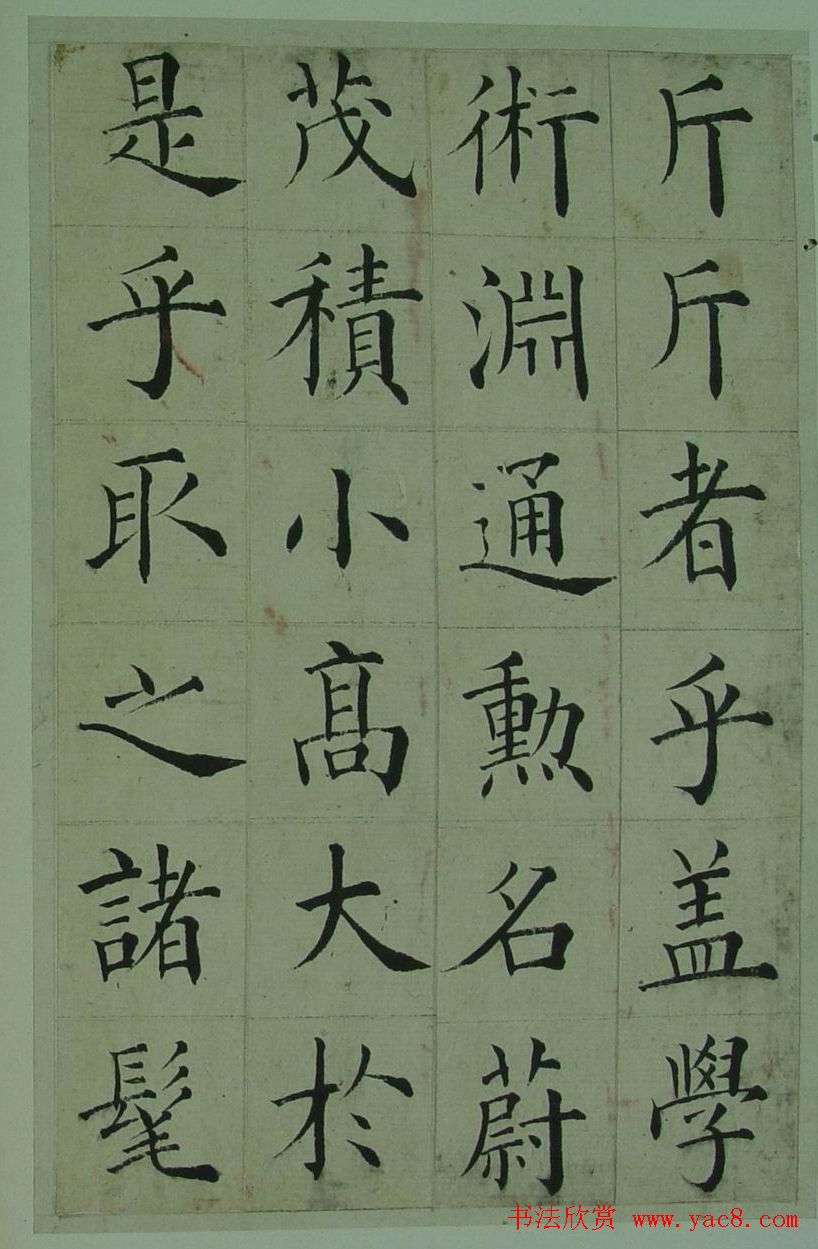 斤斤者乎盖學
術淵通勲名蔚
茂積小髙大於
是乎取之諸髦
书法欣赏 www.yac8.com